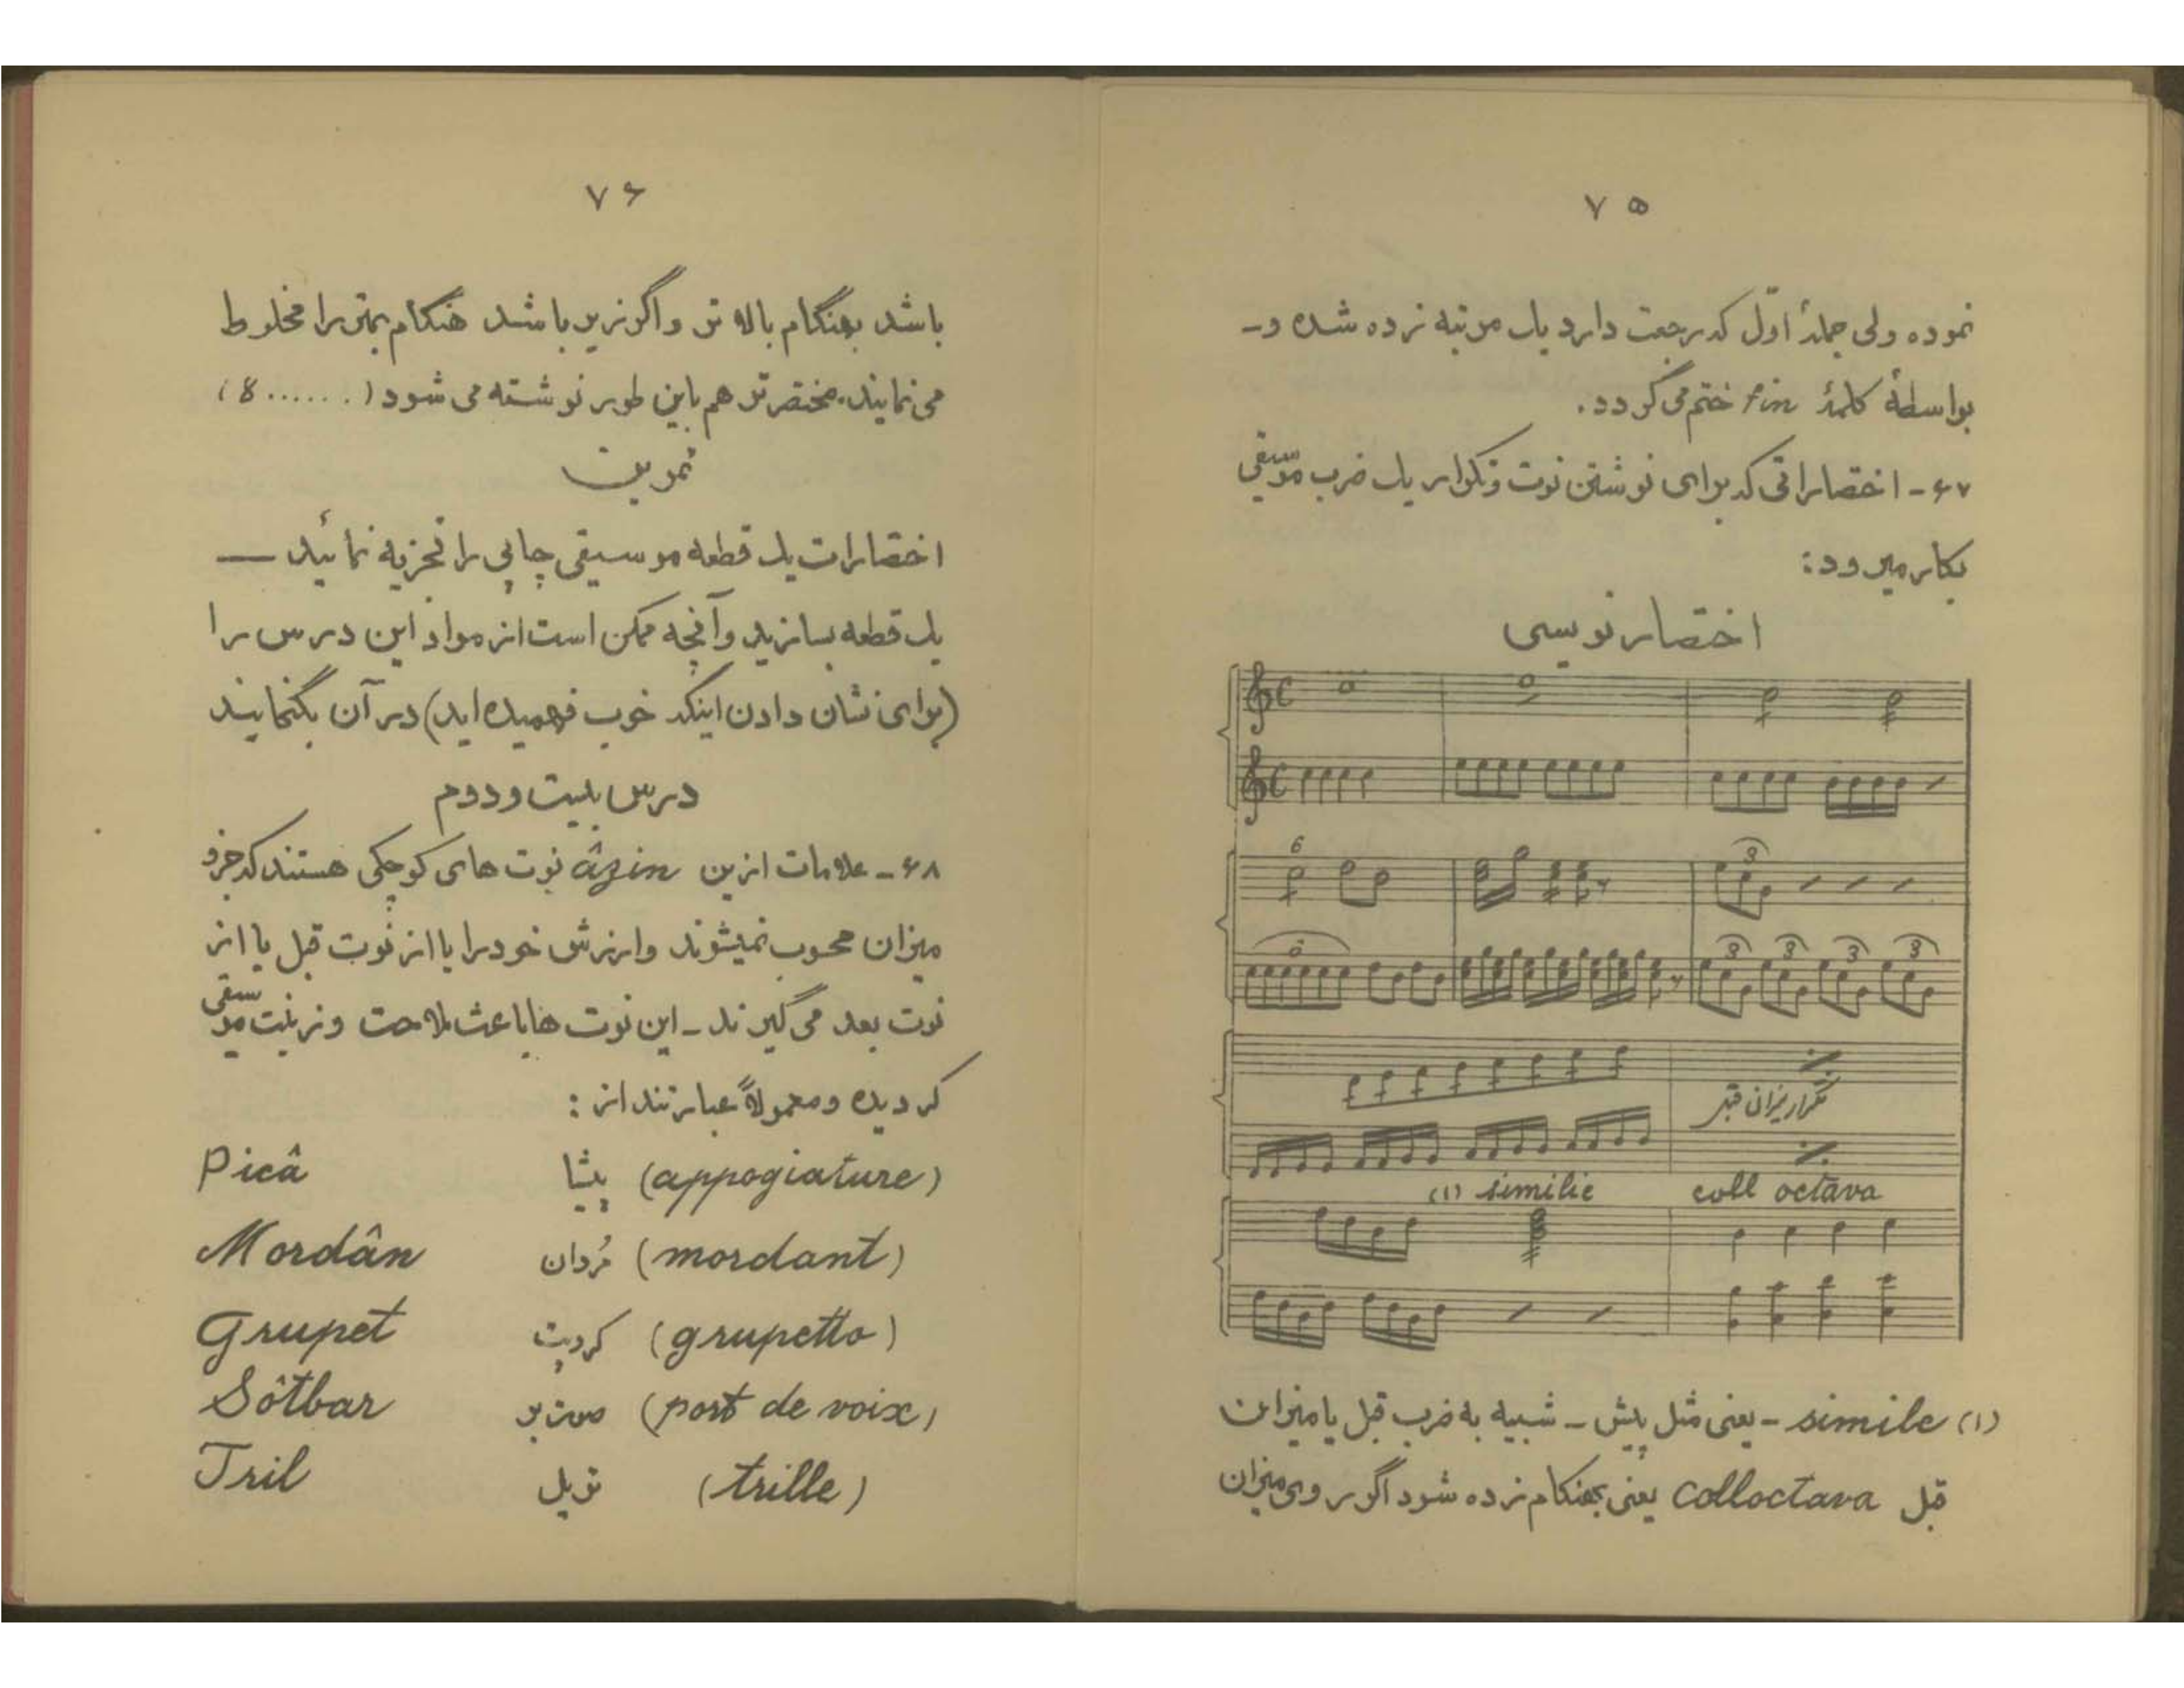 ۷۵
نموده ولی جملهٔ اوّل که رجعت دارد یک مرتبه زده شده و-
بواسطهٔ کلمهٔ fin ختم می گردد.
۶۷- اختصاراتی که برای نوشتن نوت و تکرار یک ضرب موسیقی
بکار میرود:
اختصار نویسی
6
3
6
3 3 3 3
تکرار میزان قبل
(۱) similie
coll octava
(۱) simile - یعنی مثل پیش - شبیه به ضرب قبل یا میزان
قبل colloctava یعنی بهنگام زده شود اگر روی میزان
۷۶
باشد بهنگام بالاتر و اگر زیر باشد هنگام بمتر را مخلوط
می نمایند. مختصرتر هم باین طور نوشته می شود (......8)
تمرین
اختصارات یک قطعه موسیقی چاپی را تجزیه نمائید —
یک قطعه بسازید و آنچه ممکن است از مواد این درس را
(برای نشان دادن اینکه خوب فهمیده اید) در آن بگنجانید
درس بیست و دوم
۶۸- علامات ازین âzin نوت های کوچکی هستند که جزو
میزان محسوب نمیشوند و ارزش خود را یا از نوت قبل یا از
نوت بعد می گیرند - این نوت ها باعث ملاحت و زینت موسیقی
گردیده و معمولاً عبارتند از:
(appogiature) پیشا Picâ
(mordant) مُردان Mordân
(grupetto) گروپت Grupet
(port de voix) صوت بر Sôtbar
(trille) تریل Tril